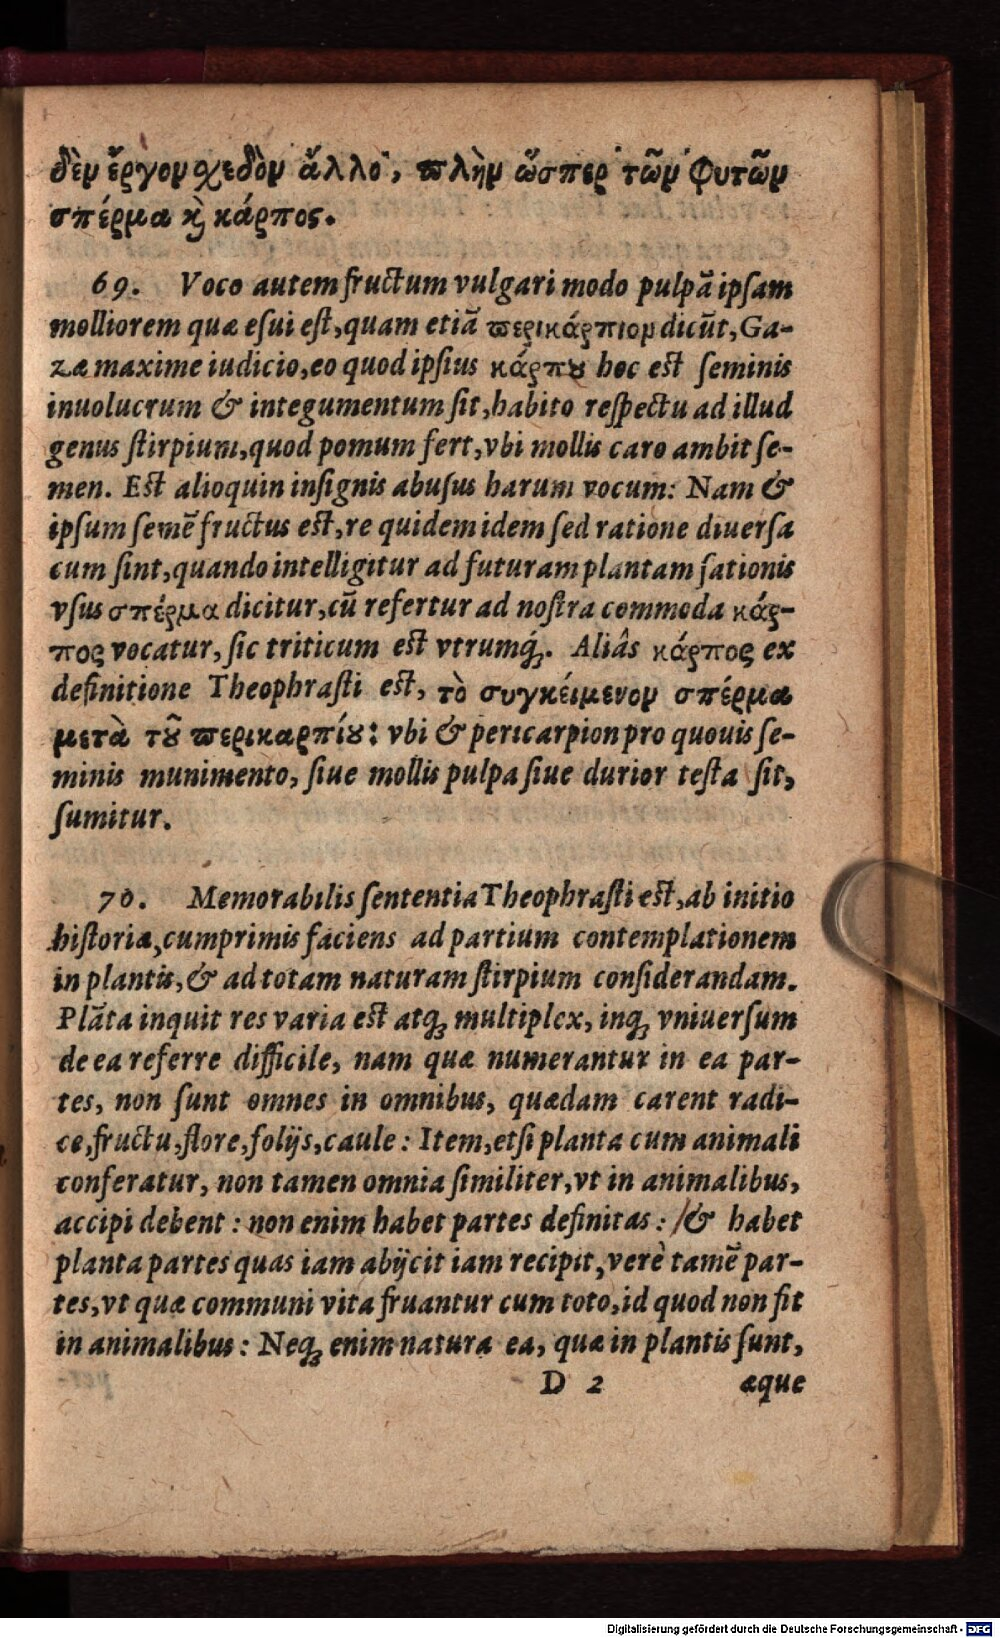 δὲν ἔργον σχεδὸν ἄλλο, πλὴν ὥσπερ τῶν φυτῶν
σπέρμα κὶ κάρπος.
69. Voco autem fructum vulgari modo pulpā ipſam
molliorem quæ eſui eſt, quam etiā περικάρπιον dicūt, Ga-
zæ maxime iudicio, eo quod ipſius κάρπου hoc est ſeminis
inuolucrum & integumentum ſit, habito reſpectu ad illud
genus ſtirpium, quod pomum fert, vbi mollis caro ambit ſe-
men. Eſt alioquin inſignis abuſus harum vocum: Nam &
ipſum ſemē fructus eſt, re quidem idem ſed ratione diuerſa
cum ſint, quando intelligitur ad futuram plantam ſationis
vſus σπέρμα dicitur, cū refertur ad noſtra commoda κάρ-
πος vocatur, ſic triticum eſt vtrumq́;. Aliâs κάρπος ex
definitione Theophraſti eſt, τὸ συγκείμενον σπέρμα
μετὰ τοῦ περικαρπίου: vbi & pericarpion pro quouis ſe-
minis munimento, ſiue mollis pulpa ſiue durior teſta ſit,
ſumitur.
70. Memorabilis ſententia Theophraſti eſt, ab initio
hiſtoriæ, cumprimis faciens ad partium contemplationem
in plantis, & ad totam naturam ſtirpium conſiderandam.
Plāta inquit res varia eſt atq; multiplex, inq; vniuerſum
de ea referre difficile, nam quæ numerantur in ea par-
tes, non ſunt omnes in omnibus, quædam carent radi-
ce, fructu, flore, folijs, caule: Item, etſi planta cum animali
conferatur, non tamen omnia ſimiliter, vt in animalibus,
accipi debent: non enim habet partes definitas: & habet
planta partes quas iam abijcit iam recipit, verè tamē par-
tes, vt quæ communi vita fruantur cum toto, id quod non fit
in animalibus: Neq; enim natura ea, quæ in plantis ſunt,
D 2 æque
Digitalisierung gefördert durch die Deutsche Forschungsgemeinschaft - DFG